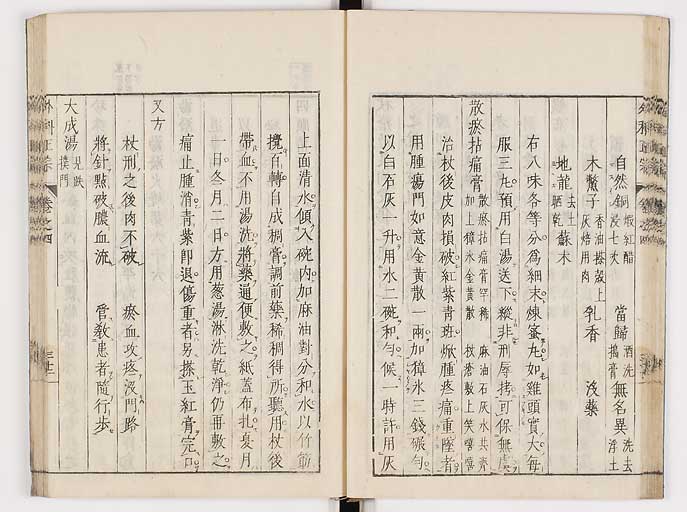 自然銅 煆紅醋浸七次 當歸 酒洗搗膏 無名異 洗去浮土
木鱉子 香油搽殼上灰焙用肉 乳香 沒藥
地龍 去土晒乾 蘇木
右八味各等分爲細末煉蜜丸如雞頭實大每
服三丸預用白湯送下縱非刑辱拷可保無虞
散瘀拈痛膏 散瘀拈痛膏罕稀 麻油石灰水共齊 加上獐氷金黃散 杖瘡敷上笑嘻嘻
治杖後皮肉損破紅紫青班焮腫疼痛重墜者
用腫瘍門如意金黃散一兩加獐氷三錢碾勻
以白石灰一升用水二碗和勻候一時許用灰
上面清水傾入碗內加麻油對分和水以竹筯
攪百轉自成稠膏調前藥稀稠得所聽用杖後
帶血不用湯洗將藥通便敷之紙蓋布扎夏月
一日冬月二日方用葱湯淋洗乾淨仍再敷之
痛止腫消青紫即退傷重者另搽玉紅膏完口
又方
杖刑之後肉不破 瘀血攻疼沒門路
將針點破膿血流 管教患者隨行步
大成湯 見跌撲門
外科正宗 卷之四